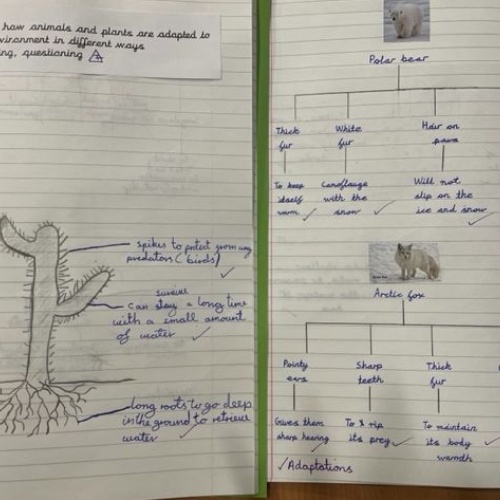 how animals and plants are adapted to
vironment in different ways
ing, questioning
spikes to protect from any
predators (birds)
survive
can stay a long time
with a small amount
of water
long roots to go deep
in the ground to retrieve
water
Polar bear
Thick
fur
White
fur
Hair on
paws
To keep
itself
warm
Camoflauge
with the
snow
Will not
slip on the
ice and snow
Arctic fox
Pointy
ears
Sharp
teeth
Thick
fur
Gives them
sharp hearing
To rip
its prey
To maintain
its body
warmth
Adaptations